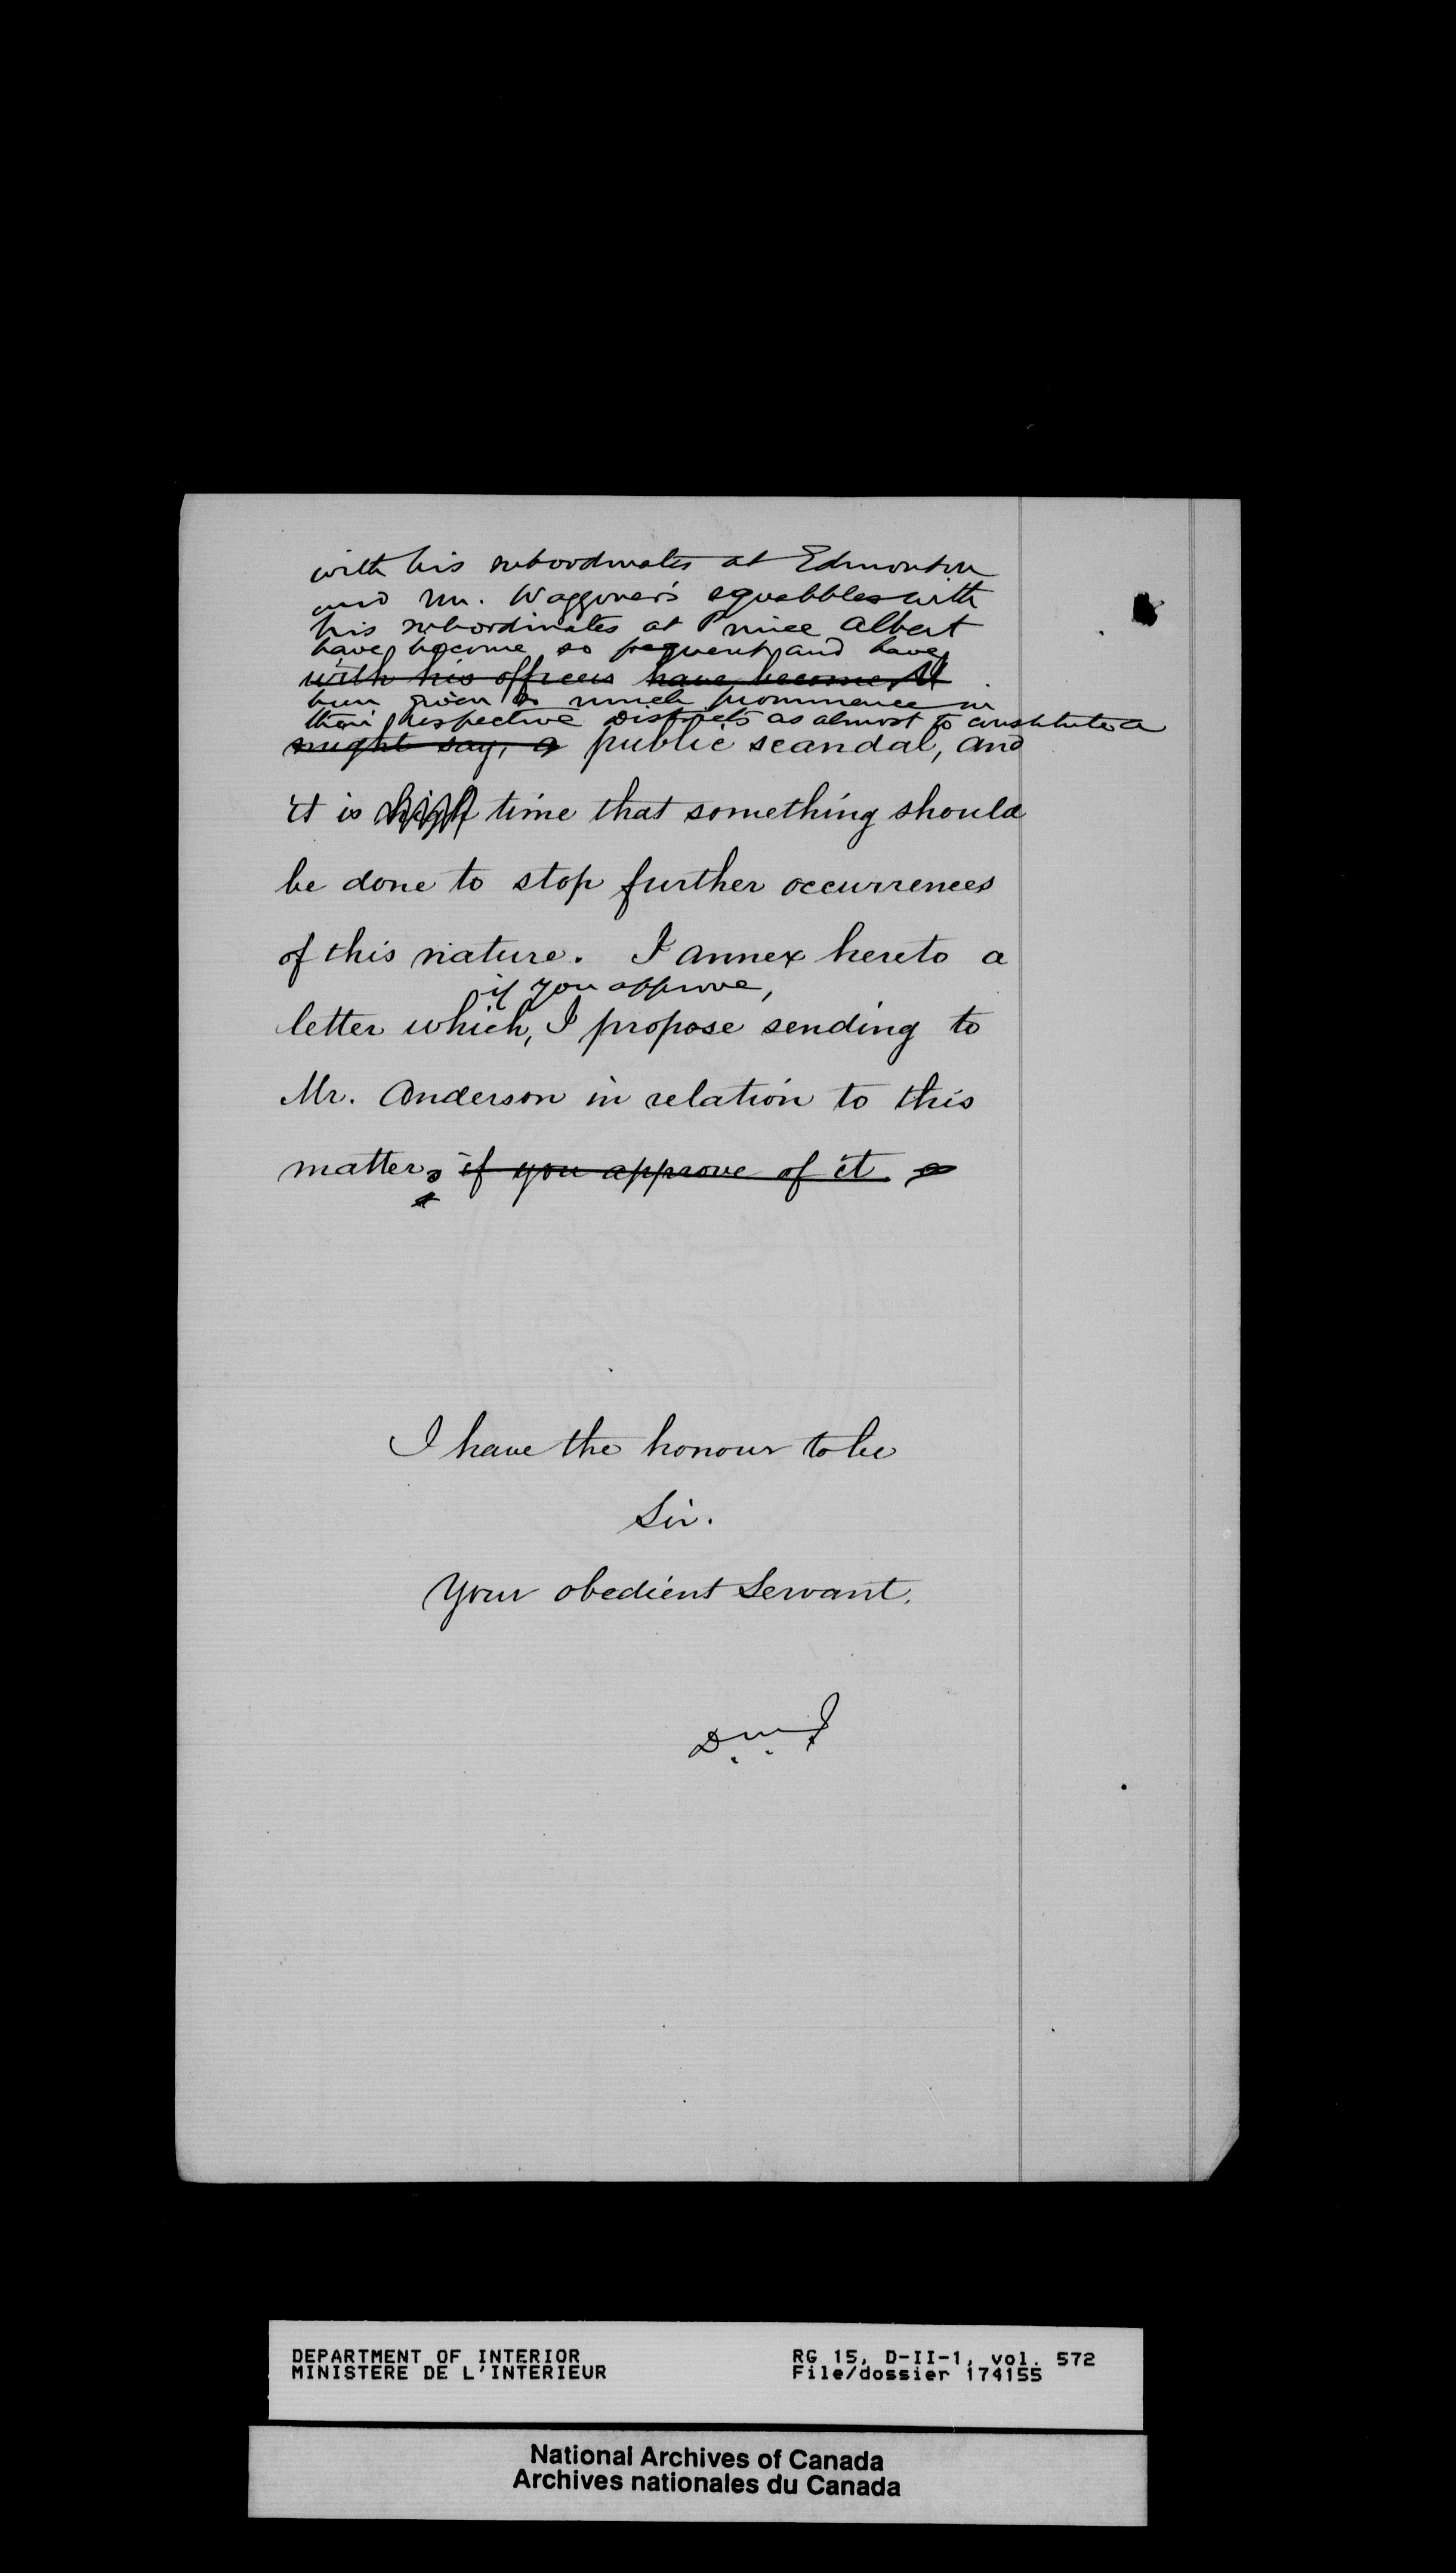 with his subordinates at Edmonton
and Mr. Waggoner's squabbles with
his subordinates at Prince Albert
have become so frequent, and have
with his officers have become, I
been given so much prominence in
their respective Districts as almost to constitute a
might say, a public scandal, and
it is high time that something should
be done to stop further occurrences
of this nature. I annex hereto a
if you approve,
letter which, I propose sending to
Mr. Anderson in relation to this
matter, if you approve of it.
I have the honour to be
Sir.
Your obedient Servant.
D.M.I.
DEPARTMENT OF INTERIOR
MINISTERE DE L'INTERIEUR
RG 15, D-II-1, vol. 572
File/dossier 174155
National Archives of Canada
Archives nationales du Canada